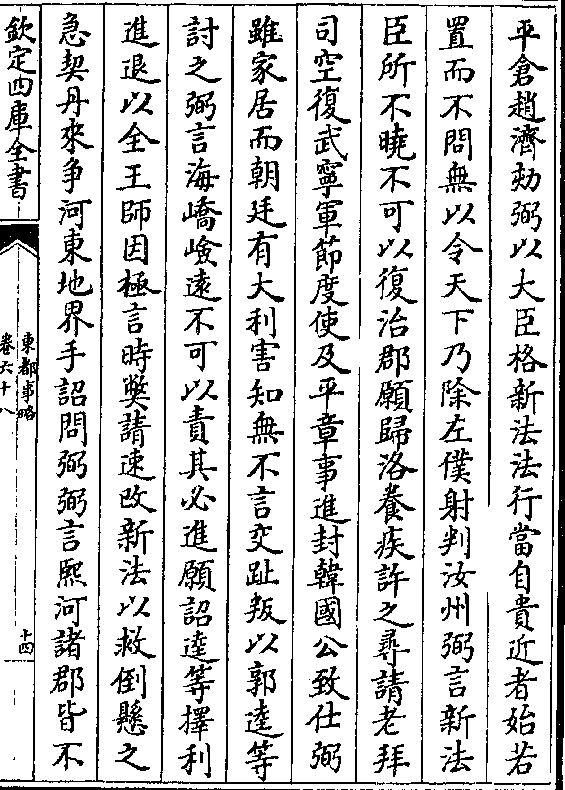 平倉趙濟劾弼以大臣格新法法行當自貴近者始若
置而不問無以令天下乃除左僕射判汝州弼言新法
臣所不曉不可以復治郡願歸洛養疾許之尋請老拜
司空復武寧軍節度使及平章事進封韓國公致仕弼
雖家居而朝廷有大利害知無不言交趾叛以郭逵等
討之弼言海嶠嶮遠不可以責其必進願詔逵等擇利
進退以全王師因極言時弊請速改新法以救倒懸之
急契丹來爭河東地界手詔問弼弼言熙河諸郡皆不
欽定四庫全書
東都事略
卷六十八
十四